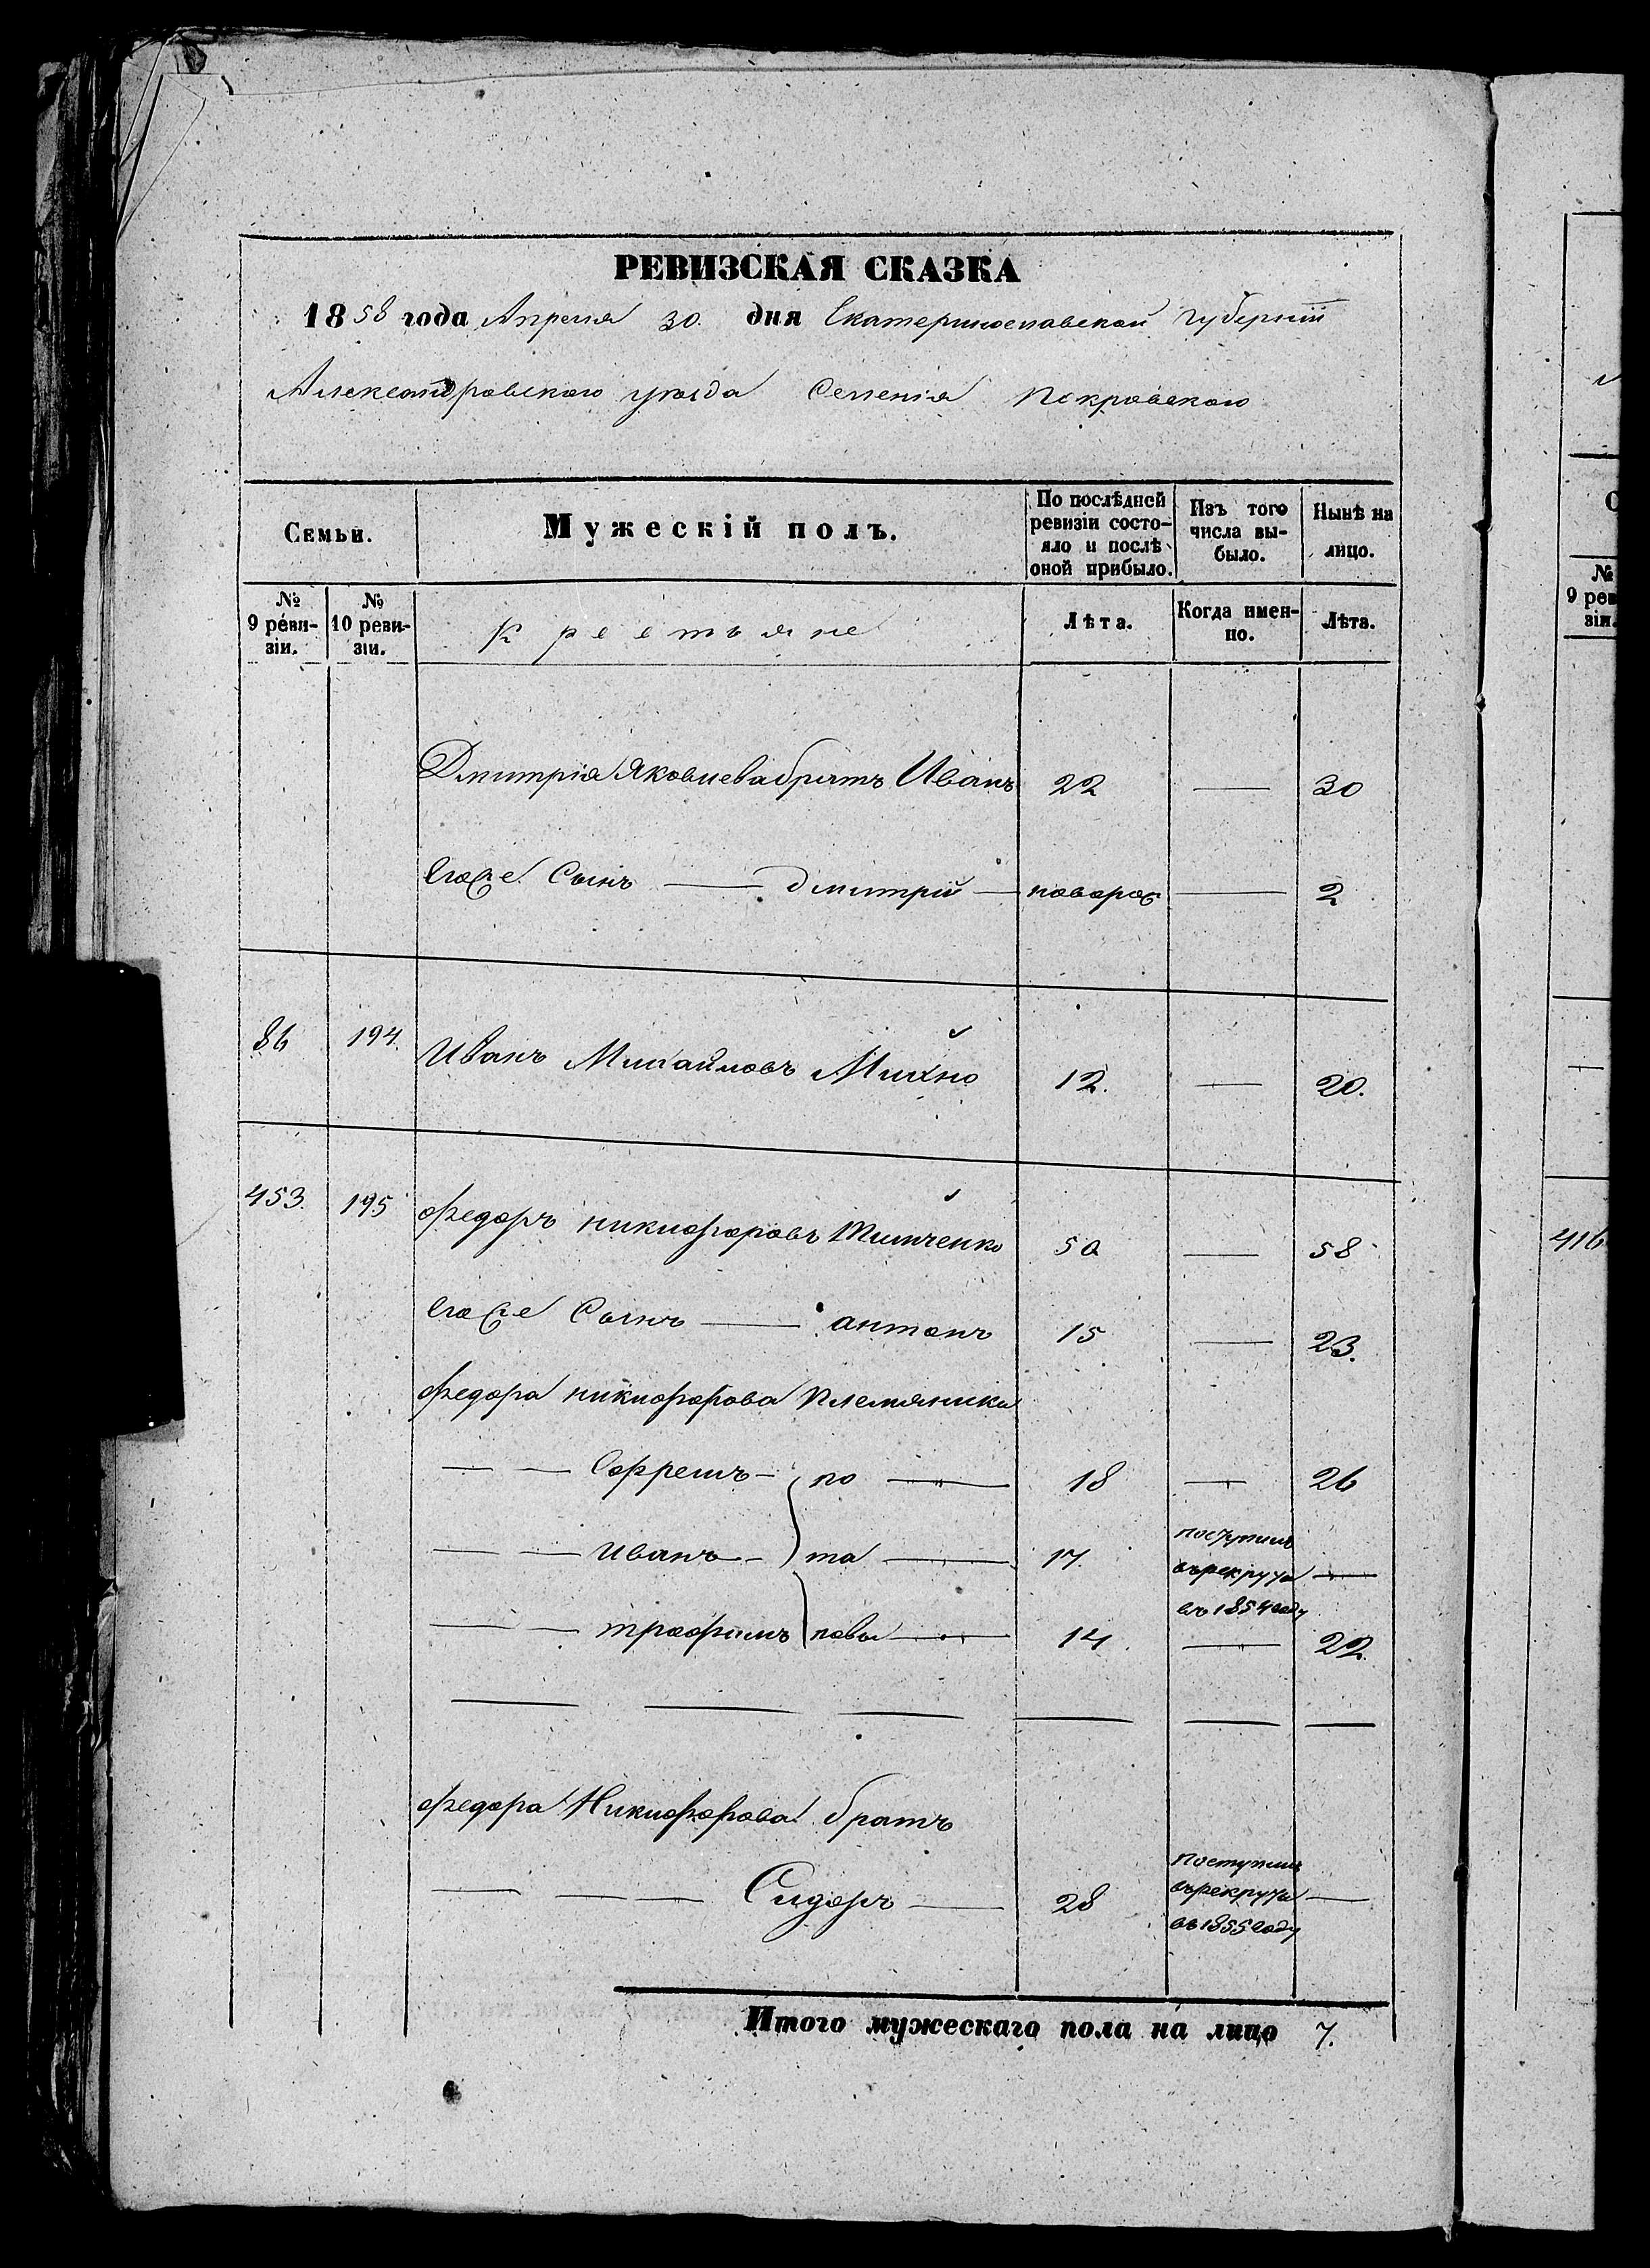 РЕВИЗСКАЯ СКАЗКА
1858 года Апреля 30. дня Екатеринославской Губернiи
Александровского уѣзда Селенiя Покровского
Семьи.
Мужескiй полъ.
По послѣдней ревизiи состояло и послѣ оной прибыло.
Изъ того числа выбыло.
Нынѣ на лицо.
№ 9 ревизiи.
№ 10 ревизiи.
Крестьяне
Лѣта.
Когда именно.
Лѣта.
Дмитрiя Яковлева братъ Иванъ 22 — 30
Егоже Сынъ — дмитрiй — новорож — 2
86 194. Иванъ Михайловъ Михно 12. — 20.
453. 195 федоръ никифоровъ Тимченко 50 — 58
Егоже Сынъ — антонъ 15 — 23.
федора никифорова Племяники
— — Ефремъ — по — 18 — 26
— — Иванъ — та — 17. поступилъ
върекруты —
въ 1854 году
— — трофимъ повы — 14. — 22.
федора Никифорова братъ
— — — Сидоръ — 28 поступилъ
върекруты —
въ 1855 году
Итого мужескаго пола на лицо 7.
№
9 рев
зiи.
416